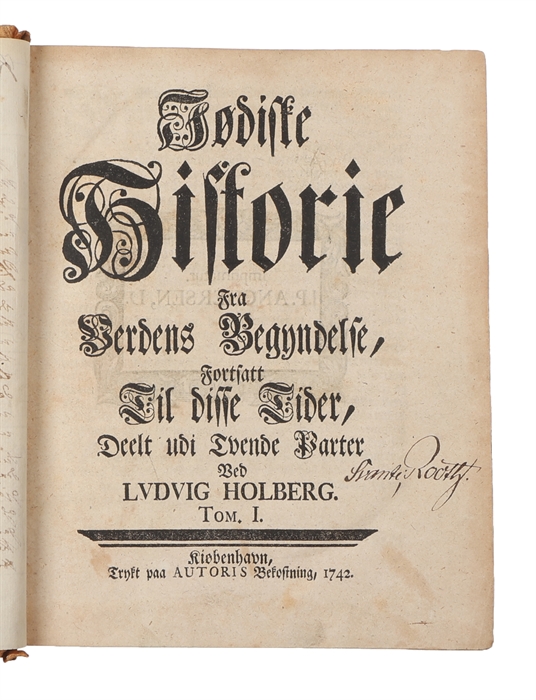 Jødiske
Historie
Fra
Verdens Begyndelse,
Fortsatt
Til disse Tider,
Deelt udi Tvende Parter
Ved
LVDVIG HOLBERG.
TOM. I.
Kiøbenhavn,
Trykt paa AUTORIS Bekostning, 1742.